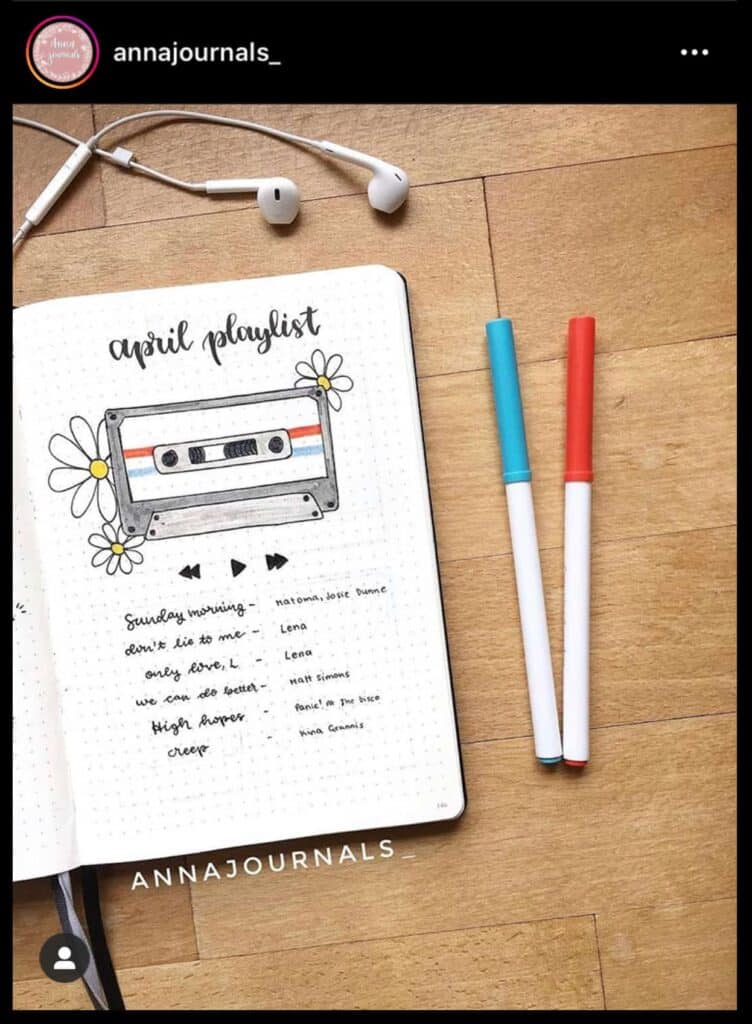 Anna journals
annajournals_
april playlist
Sunday morning - Matoma, Josie Dunne
don't lie to me - Lena
only love, L - Lena
we can do better - Matt Simons
High hopes - Panic! At The Disco
creep - Kina Grannis
146
ANNAJOURNALS_